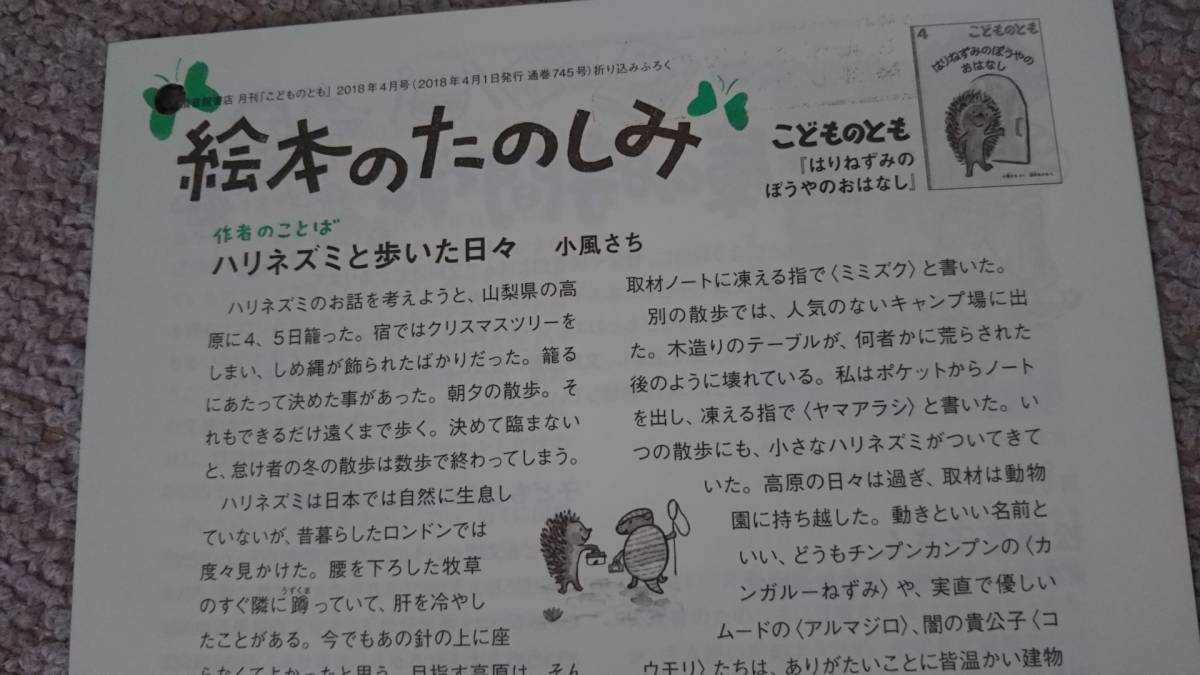 書店 月刊「こどものとも」 2018年4月号(2018年4月1日発行 通巻745号)折り込みふろく
絵本のたのしみ
こどものとも
『はりねずみの
ぼうやのおはなし』
4 こどものとも
はりねずみのぼうやの
おはなし
作者のことば
ハリネズミと歩いた日々 小風さち
ハリネズミのお話を考えようと、山梨県の高
原に4、5日籠った。宿ではクリスマスツリーを
しまい、しめ縄が飾られたばかりだった。籠る
にあたって決めた事があった。朝夕の散歩。そ
れもできるだけ遠くまで歩く。決めて臨まない
と、怠け者の冬の散歩は数歩で終わってしまう。
ハリネズミは日本では自然に生息し
ていないが、昔暮らしたロンドンでは
度々見かけた。腰を下ろした牧草
のすぐ隣に蹲っていて、肝を冷やし
うずくま
たことがある。今でもあの針の上に座
らなくてよかったと思う。目指す高原は、そん
取材ノートに凍える指で〈ミミズク〉と書いた。
別の散歩では、人気のないキャンプ場に出
た。木造りのテーブルが、何者かに荒らされた
後のように壊れている。私はポケットからノート
を出し、凍える指で〈ヤマアラシ〉と書いた。い
つの散歩にも、小さなハリネズミがついてきて
いた。高原の日々は過ぎ、取材は動物
園に持ち越した。動きといい名前と
いい、どうもチンプンカンプンの〈カ
ンガルーねずみ〉や、実直で優しい
ムードの〈アルマジロ〉、闇の貴公子〈コ
ウモリ〉たちは、ありがたいことに皆温かい建物